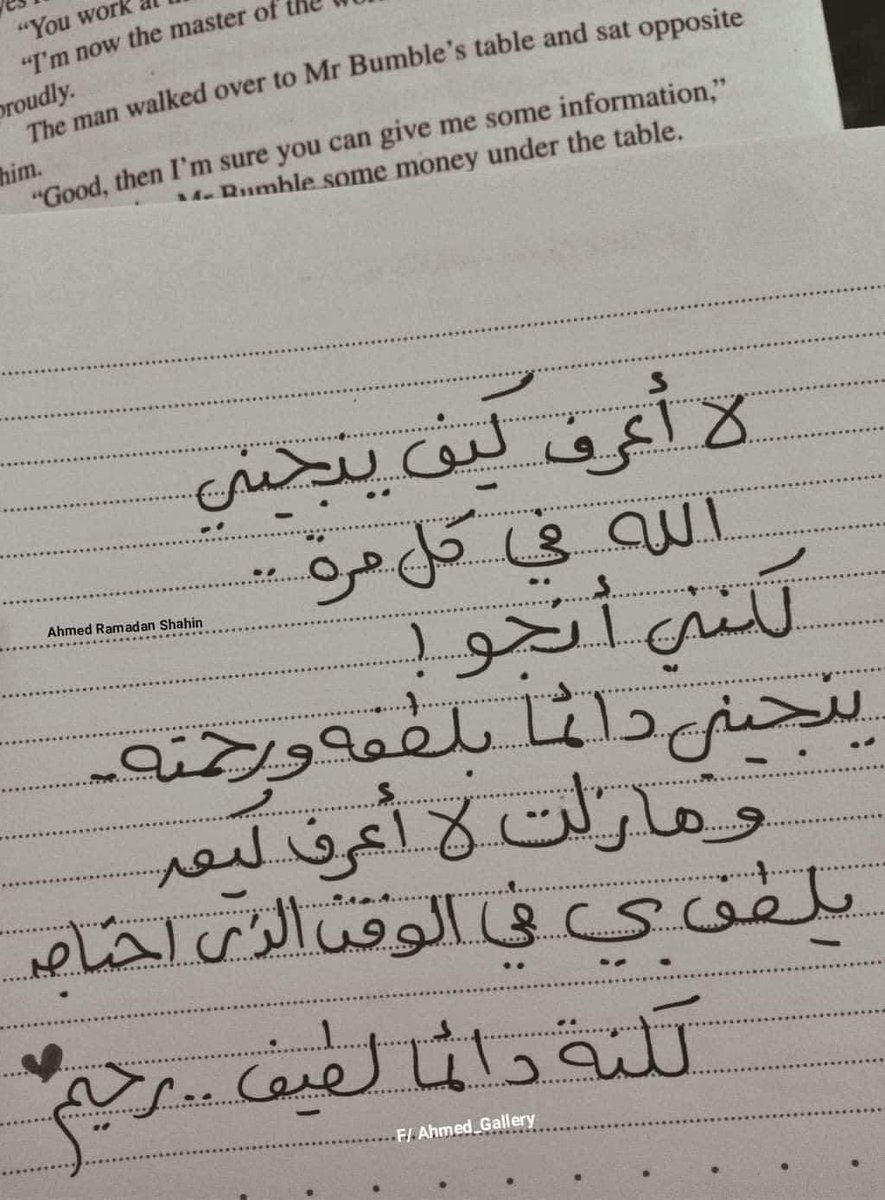 “You work at
“I’m now the master of the
proudly.
The man walked over to Mr Bumble’s table and sat opposite
him.
“Good, then I’m sure you can give me some information,”
Mr Bumble some money under the table.
لا أعرف كيف ينجيني
الله في كل مرة ..
لكنني أنجو !
ينجيني دائمًا بلطفه ورحمته -
وما زلت لا أعرف كيف
يلطف بي في الوقت الذي احتاج
لكنه دائمًا لطيف .. رحيم
Ahmed Ramadan Shahin
F/ Ahmed_Gallery